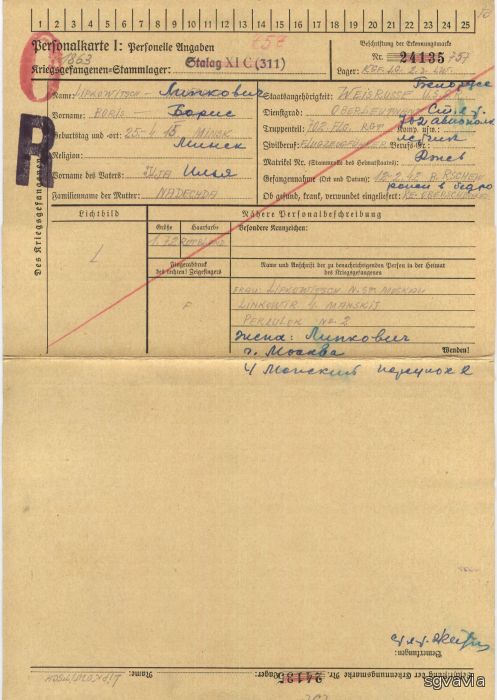 1 2 3 4 5 6 7 8 9 10 11 12 13 14 15 16 17 18 19 20 21 22 23 24 25
Personalkarte I: Personelle Angaben
1863
757
Kriegsgefangenen-Stammlager: Stalag XI C (311)
Beschriftung der Erkennungsmarke
Nr. 24135 757
Lager:
R
Des Kriegsgefangenen
Name: LIPKOWITSCH - Липкович
Vorname: BORIS - Борис
Geburtstag und -ort: 25.4.15 MINSK
Минск
Religion:
Vorname des Vaters: ILJA Илья
Familienname der Mutter: NADECHDA
Staatsangehörigkeit: WEISRUSSE
Dienstgrad: OBERLEUTNANT
Truppenteil: 702. FLG. RGT Komp. usw.:
Zivilberuf: FLUGZEUGFÜHRER Berufs-Gr.:
летчик
Matrikel Nr. (Stammrolle des Heimatstaates): Ржев
Gefangennahme (Ort und Datum): 12.2.42 B. RSCHEW
Ob gesund, krank, verwundet eingeliefert:
Lichtbild
Nähere Personalbeschreibung
Größe Haarfarbe Besondere Kennzeichen:
1.72
Fingerabdruck
des rechten! Zeigefingers
Name und Anschrift der zu benachrichtigenden Person in der Heimat
des Kriegsgefangenen
FRAU: LIPKOWITSCH N. ST. MOSKAU
4 MANSKIJ
PERZULOK No 2
жена: Липкович
г. Москва
Wenden!
4 Манский переулок 2
Bemerkungen:
Beschriftung der Erkennungsmarke Nr. 24135 Lager: Name: LIPKOWITSCH
sgvavia